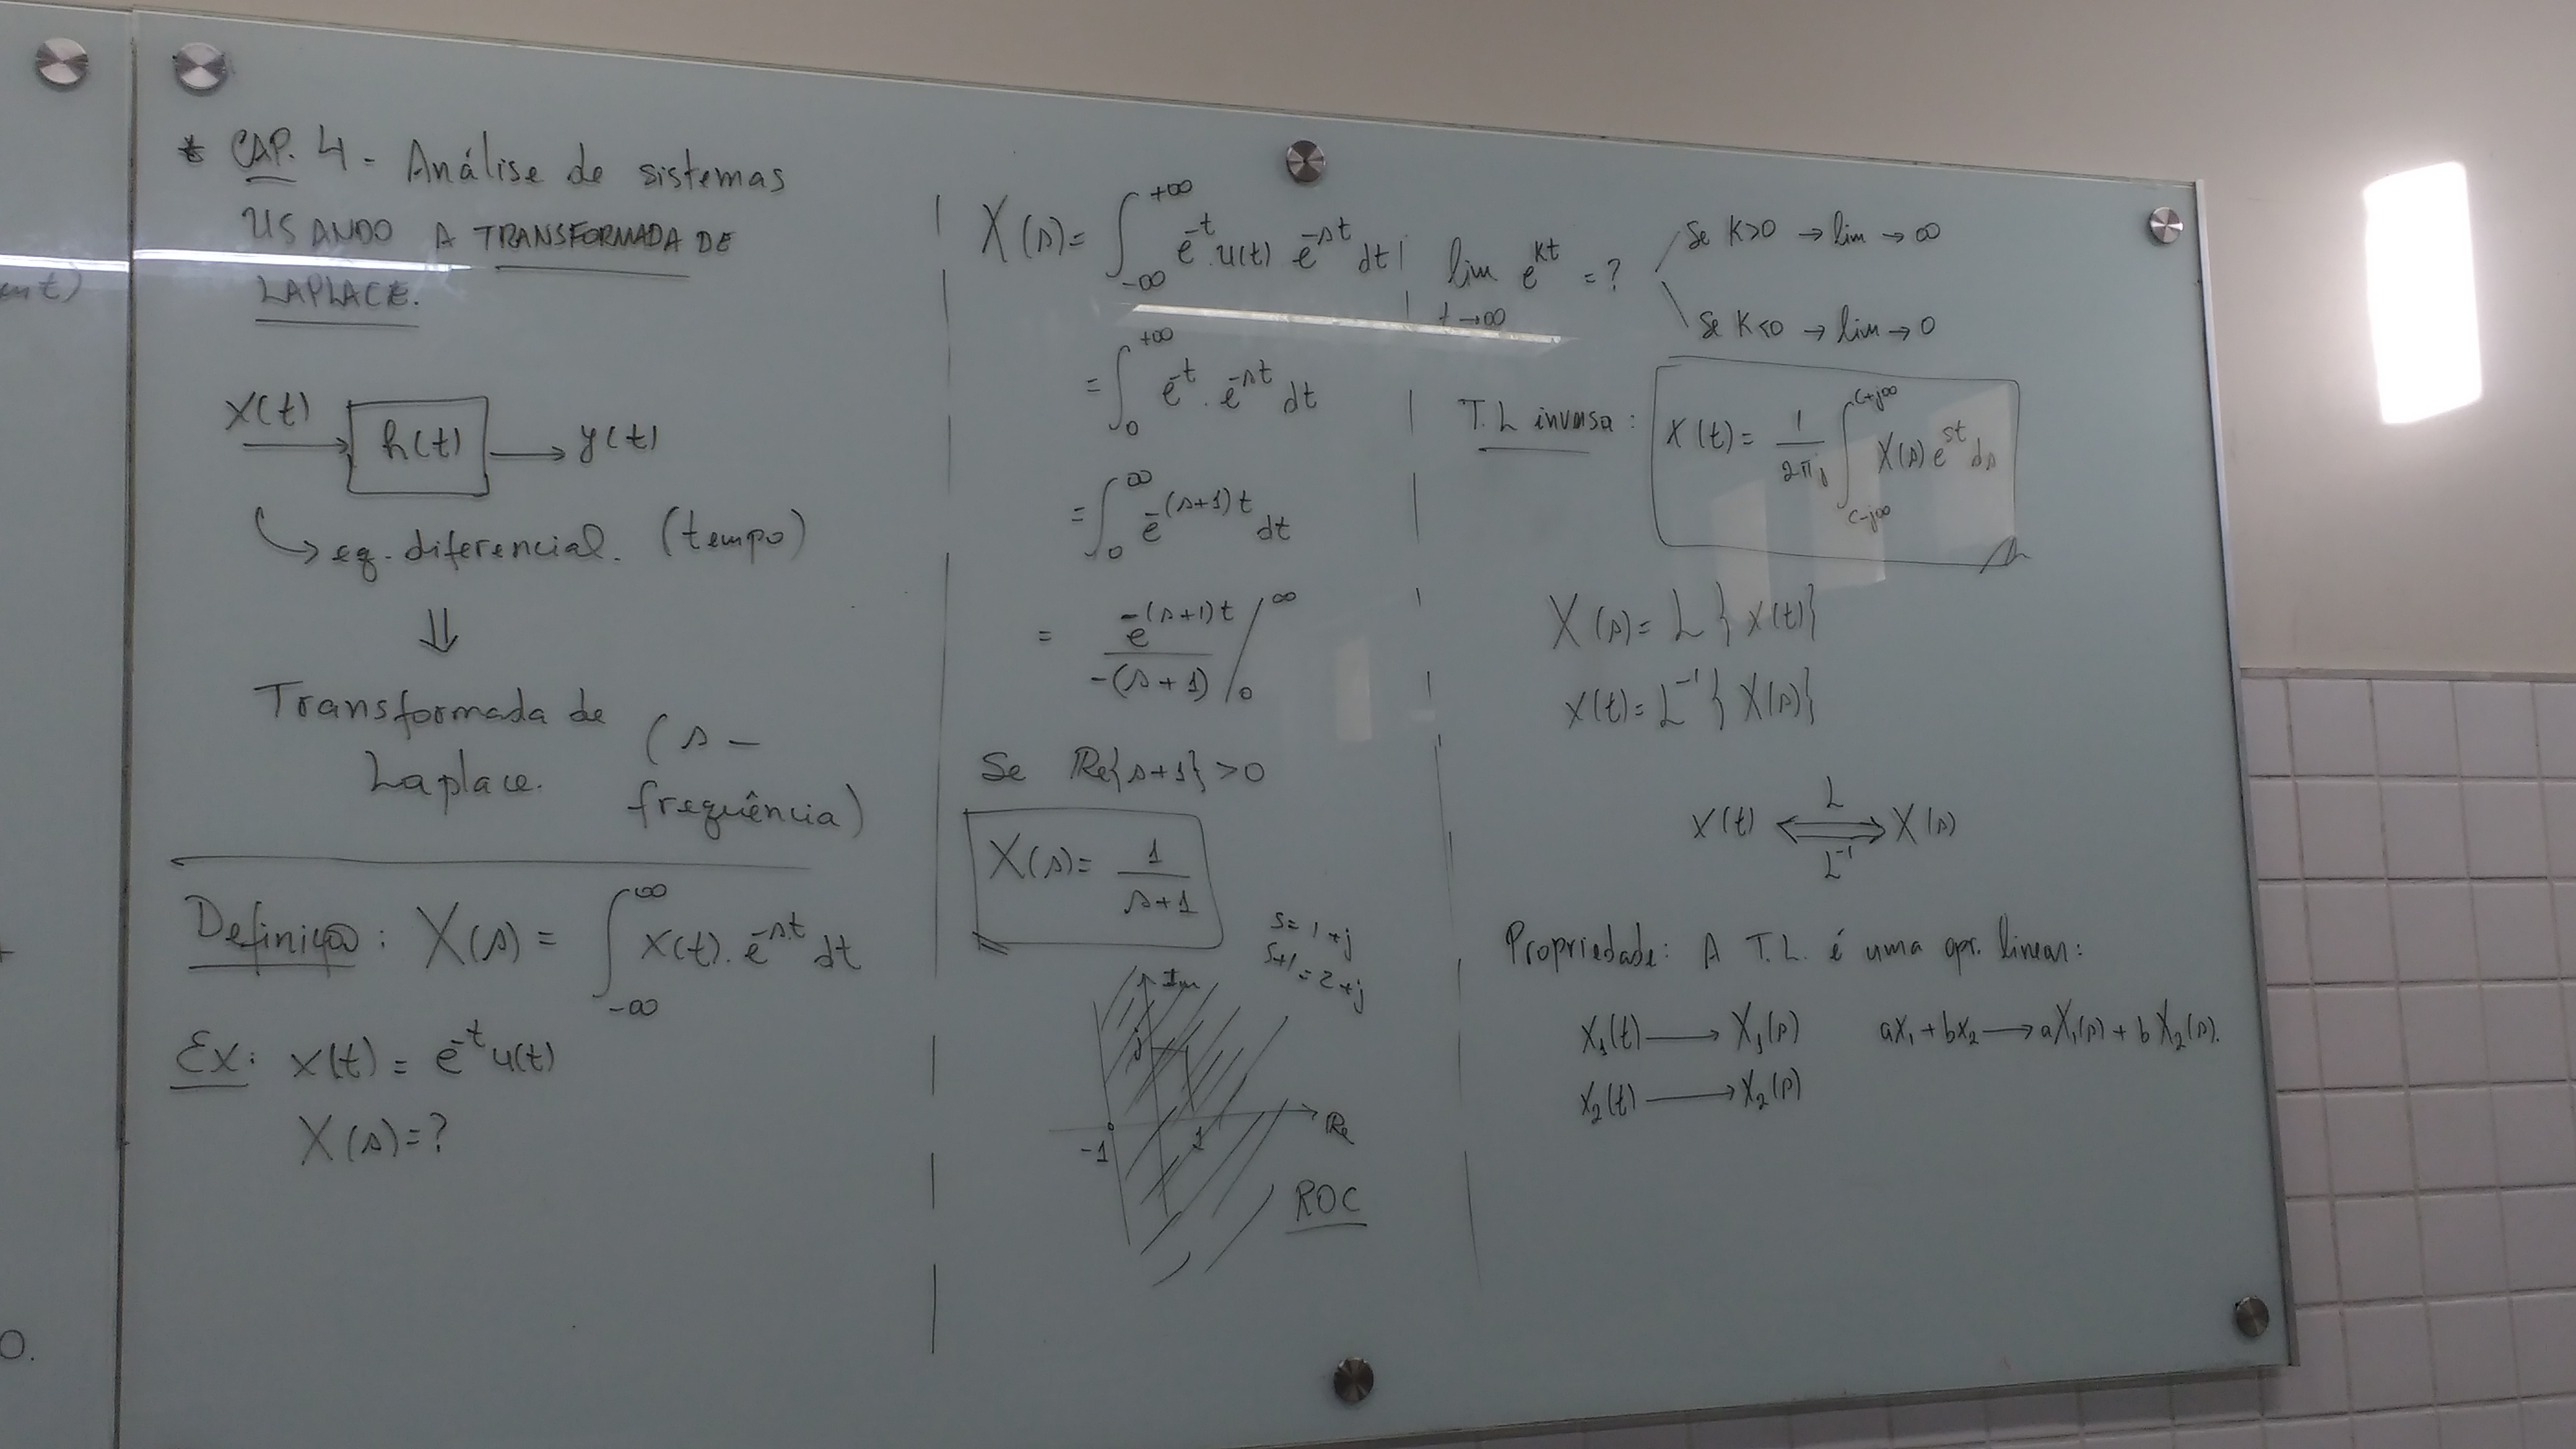 * CAP. 4 - Análise de sistemas
USANDO A TRANSFORMADA DE
LAPLACE.
x(t) → h(t) → y(t)
↳ eq. diferencial. (tempo)
⇓
Transformada de
Laplace. (s -
frequência)
Definição: X(s) = ∫_{-∞}^{∞} x(t). e^{-s.t} dt
Ex: x(t) = e^{-t} u(t)
X(s) = ?
X(s) = ∫_{-∞}^{+∞} e^{-t}.u(t) e^{-st} dt
= ∫_{0}^{+∞} e^{-t} . e^{-st} dt
= ∫_{0}^{∞} e^{-(s+1)t} dt
= e^{-(s+1)t} / -(s+1) |_{0}^{∞}
Se Re{s+1} > 0
X(s) = 1/(s+1)
s = 1+j
s+1 = 2+j
Im
j
-1 1 Re
ROC
lim_{t→∞} e^{Kt} = ?
Se K>0 → lim → ∞
Se K<0 → lim → 0
T.L inversa: x(t) = 1/2πj ∫_{c-j∞}^{c+j∞} X(s) e^{st} ds
X(s) = L{x(t)}
x(t) = L^{-1}{X(s)}
x(t) ⇔ X(s)
L
L^{-1}
Propriedade: A T.L. é uma opr. linear:
x₁(t) → X₁(s) ax₁ + bx₂ → aX₁(s) + bX₂(s).
x₂(t) → X₂(s)